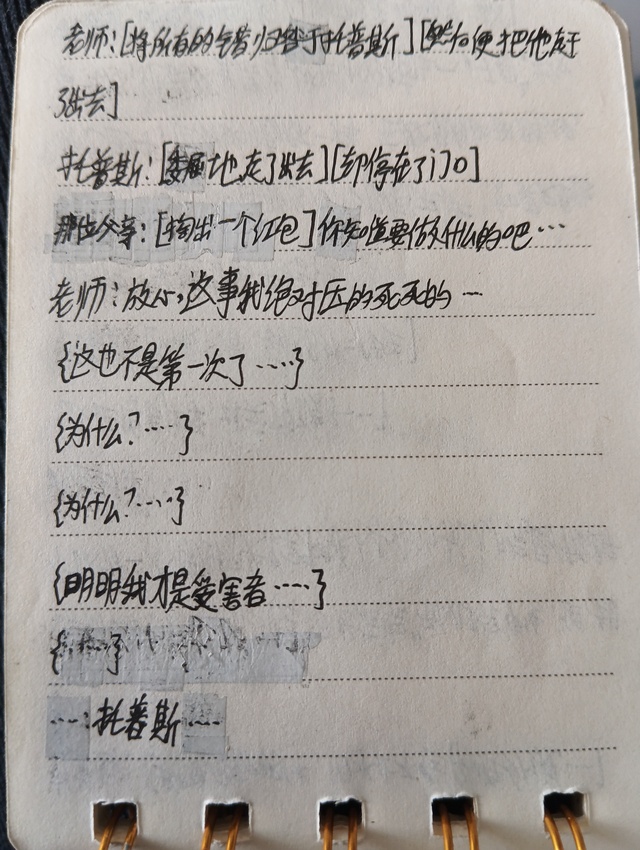 老师:[将所有的笔昔归咎于托普斯][然后便把他赶
了出去]
托普斯:[委屈地走了出去][却停在了门口]
那位父亲:[掏出一个红包]你知道要做什么的吧…
老师:放心,这事我绝对压的死死的…
{这也不是第一次了……}
{为什么?……}
{为什么?……}
{明明我才是受害者……}
{……}
……:托普斯……